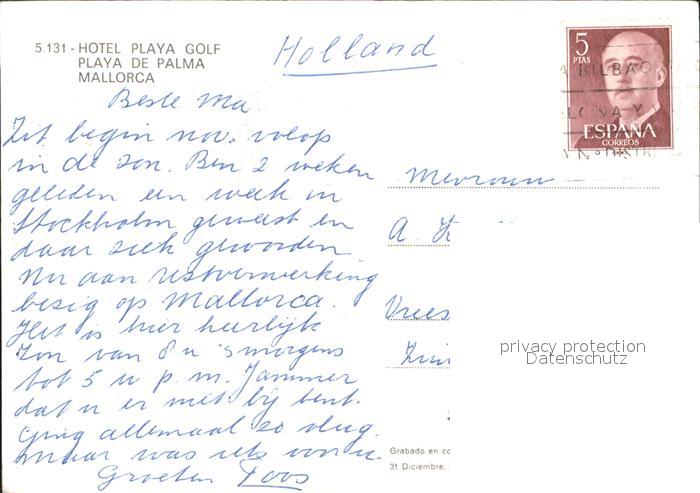 5.131 - HOTEL PLAYA GOLF
PLAYA DE PALMA
MALLORCA
Holland
5
PTAS
A BILBAO
LONA Y
ESPAÑA
CORREOS
Beste Ma
Zit begin nov. volop
in de zon. Ben 2 weken
geleden een week in
Stockholm geweest en
daar ziek geworden
Nu aan restverwerking
bezig op Mallorca.
Het is hier heerlijk
Zon van 8 u 's morgens
tot 5 u p.m. Jammer
dat u er niet bij bent.
Ging allemaal zo vlug.
maar was iets voor u
Groeten Toos
Mevrouw
A. 
Vrees
privacy protection
Datenschutz
Grabado en co
31 Diciembre,